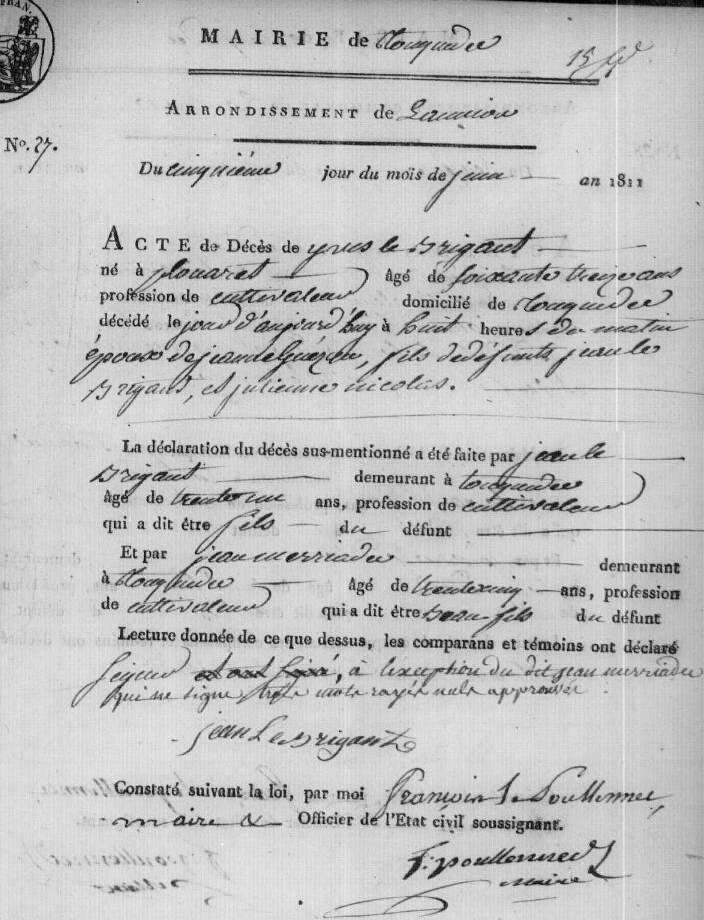 FRAN.
MAIRIE de Tonquedec
ARRONDISSEMENT de Lannion
No. 27.
Du cinquiéme jour du mois de juin an 1811
ACTE de Décès de yves le Brigant
né à plouaret âgé de soixante treize ans
profession de cultivateur domicilié de Tonquedec
décédé le jour d'aujourd'huy à huit heures du matin
époux de jeanne Guézou, fils de défunts jean le
Brigant, et julienne nicolas.
La déclaration du décès sus-mentionné a été faite par jean le
Brigant demeurant à tonquedec
âgé de trente un ans, profession de cultivateur
qui a dit être fils du défunt
Et par jean merriadec demeurant
à Tonquedec âgé de trente cinq ans, profession
de cultivateur qui a dit être Beau-fils du défunt
Lecture donnée de ce que dessus, les comparans et témoins ont déclaré
signer et ont signé, à l'exception du dit jean merriadec
qui ne signe trois mots rayés nuls approuvés
jean Le Brigant
Constaté suivant la loi, par moi François Le Poullennec,
maire & Officier de l'Etat civil soussignant.
f. poullennec
maire